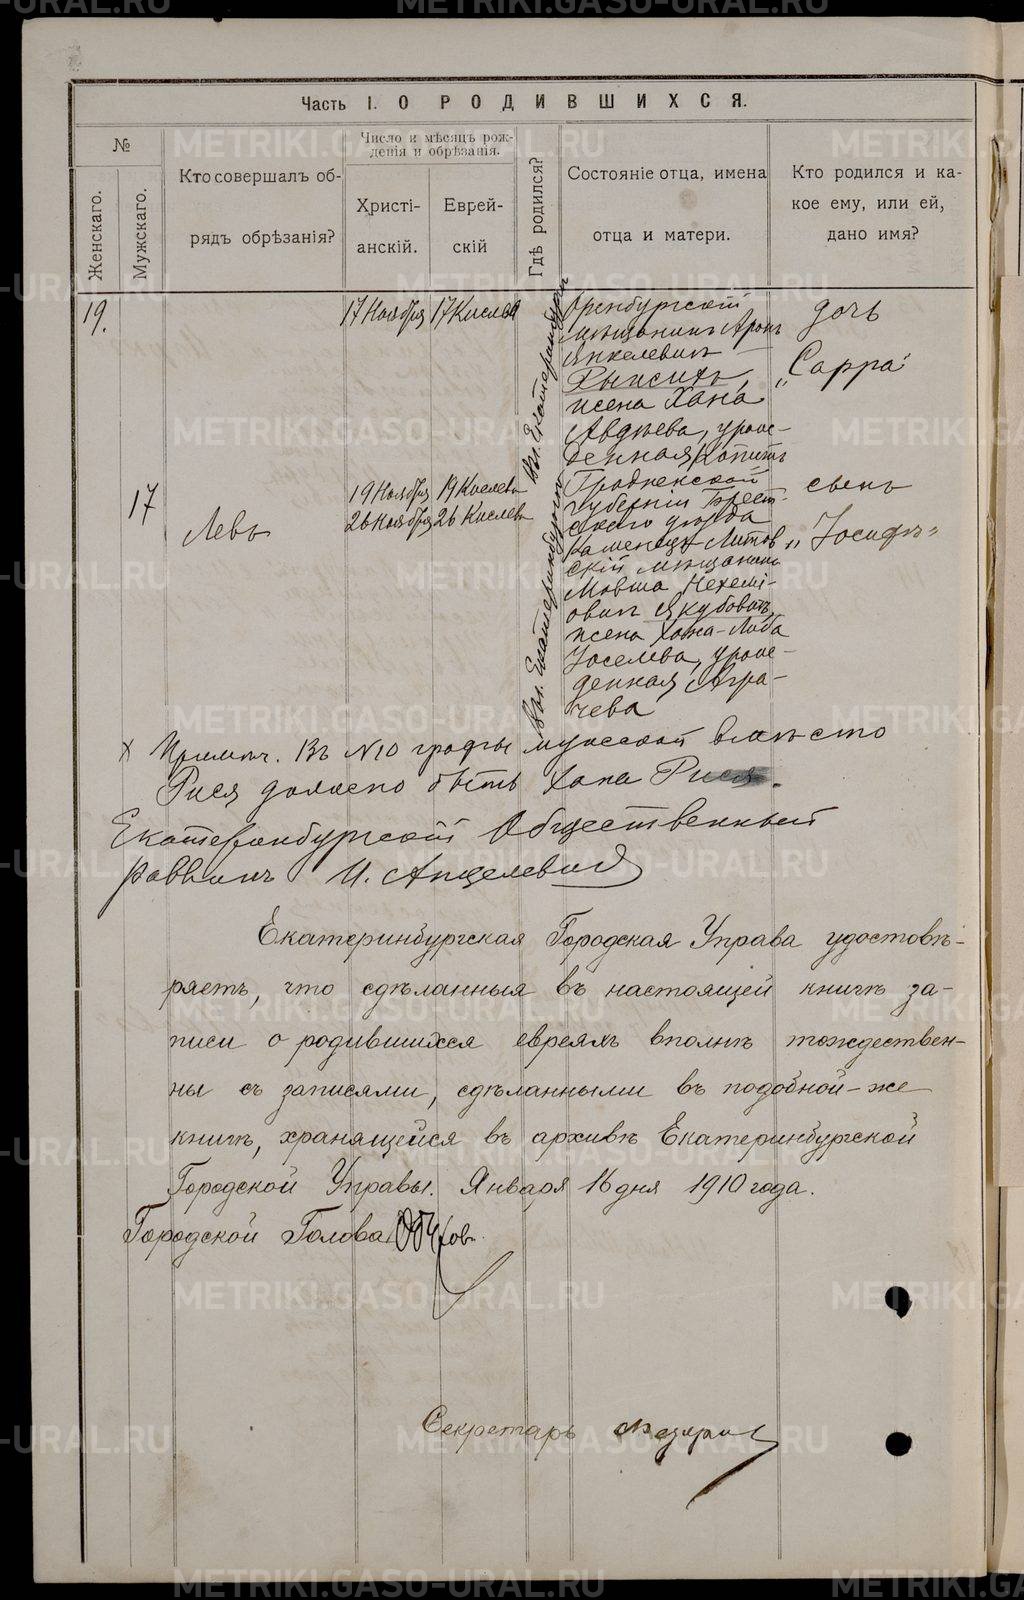 Часть I. О РОДИВШИХСЯ.
№
Женскаго.
Мужскаго.
Кто совершалъ об-
рядъ обрѣзанія?
Число и мѣсяцъ рож-
денія и обрѣзанія.
Христі-
анскій.
Еврей-
скій
Гдѣ родился?
Состояніе отца, имена
отца и матери.
Кто родился и ка-
кое ему, или ей,
дано имя?
19.
17 Ноября
17 Кислева
Въ г. Екатеринбургѣ
Оренбургскій
мѣщанинъ Аронъ
Янкелевичъ
жена Хана
Авдѣева, урож-
денная
дочь
„Сарра"
17
Левъ
19 Ноября 19 Кислева
26 Ноября 26 Кислева
Въ г. Екатеринбургѣ
Гродненской
губерніи Брест-
скаго уѣзда
Каменецъ Литов
скій мѣщанинъ
Мовша Нехемі-
овичъ Якубовичъ,
жена Хана-Либа
Іоселева, урож-
денная Агра-
чева
сынъ
„Іосифъ"
х Примѣч. Въ №10 графы мужской вмѣсто
Рися должно быть Хана Рися.
Екатеринбургскій Общественный
Раввинъ И. Анцелевичъ
Екатеринбургская Городская Управа удостовѣ-
ряетъ, что сдѣланныя въ настоящей книгѣ за-
писи о родившихся евреяхъ вполнѣ тождествен-
ны съ записями, сдѣланными въ подобной-же
книгѣ, хранящейся въ архивѣ Екатеринбургской
Городской Управы. Января 16 дня 1910 года.
Городской Голова
Секретарь
METRIKI.GASO-URAL.RU